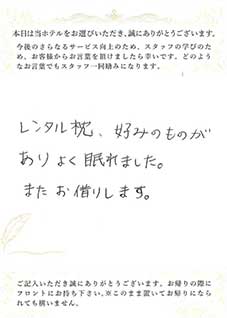 本日は当ホテルをお選びいただき、誠にありがとうございます。
今後のさらなるサービス向上のため、スタッフの学びのため、お客様からお言葉を頂けましたら幸いです。どのようなお言葉でもスタッフ一同励みになります。
レンタル枕、好みのものが
ありよく眠れました。
またお借りします。
ご記入いただき誠にありがとうございます。お帰りの際に
フロントにお持ち下さい。※このまま置いてお帰りになら
れても構いません。